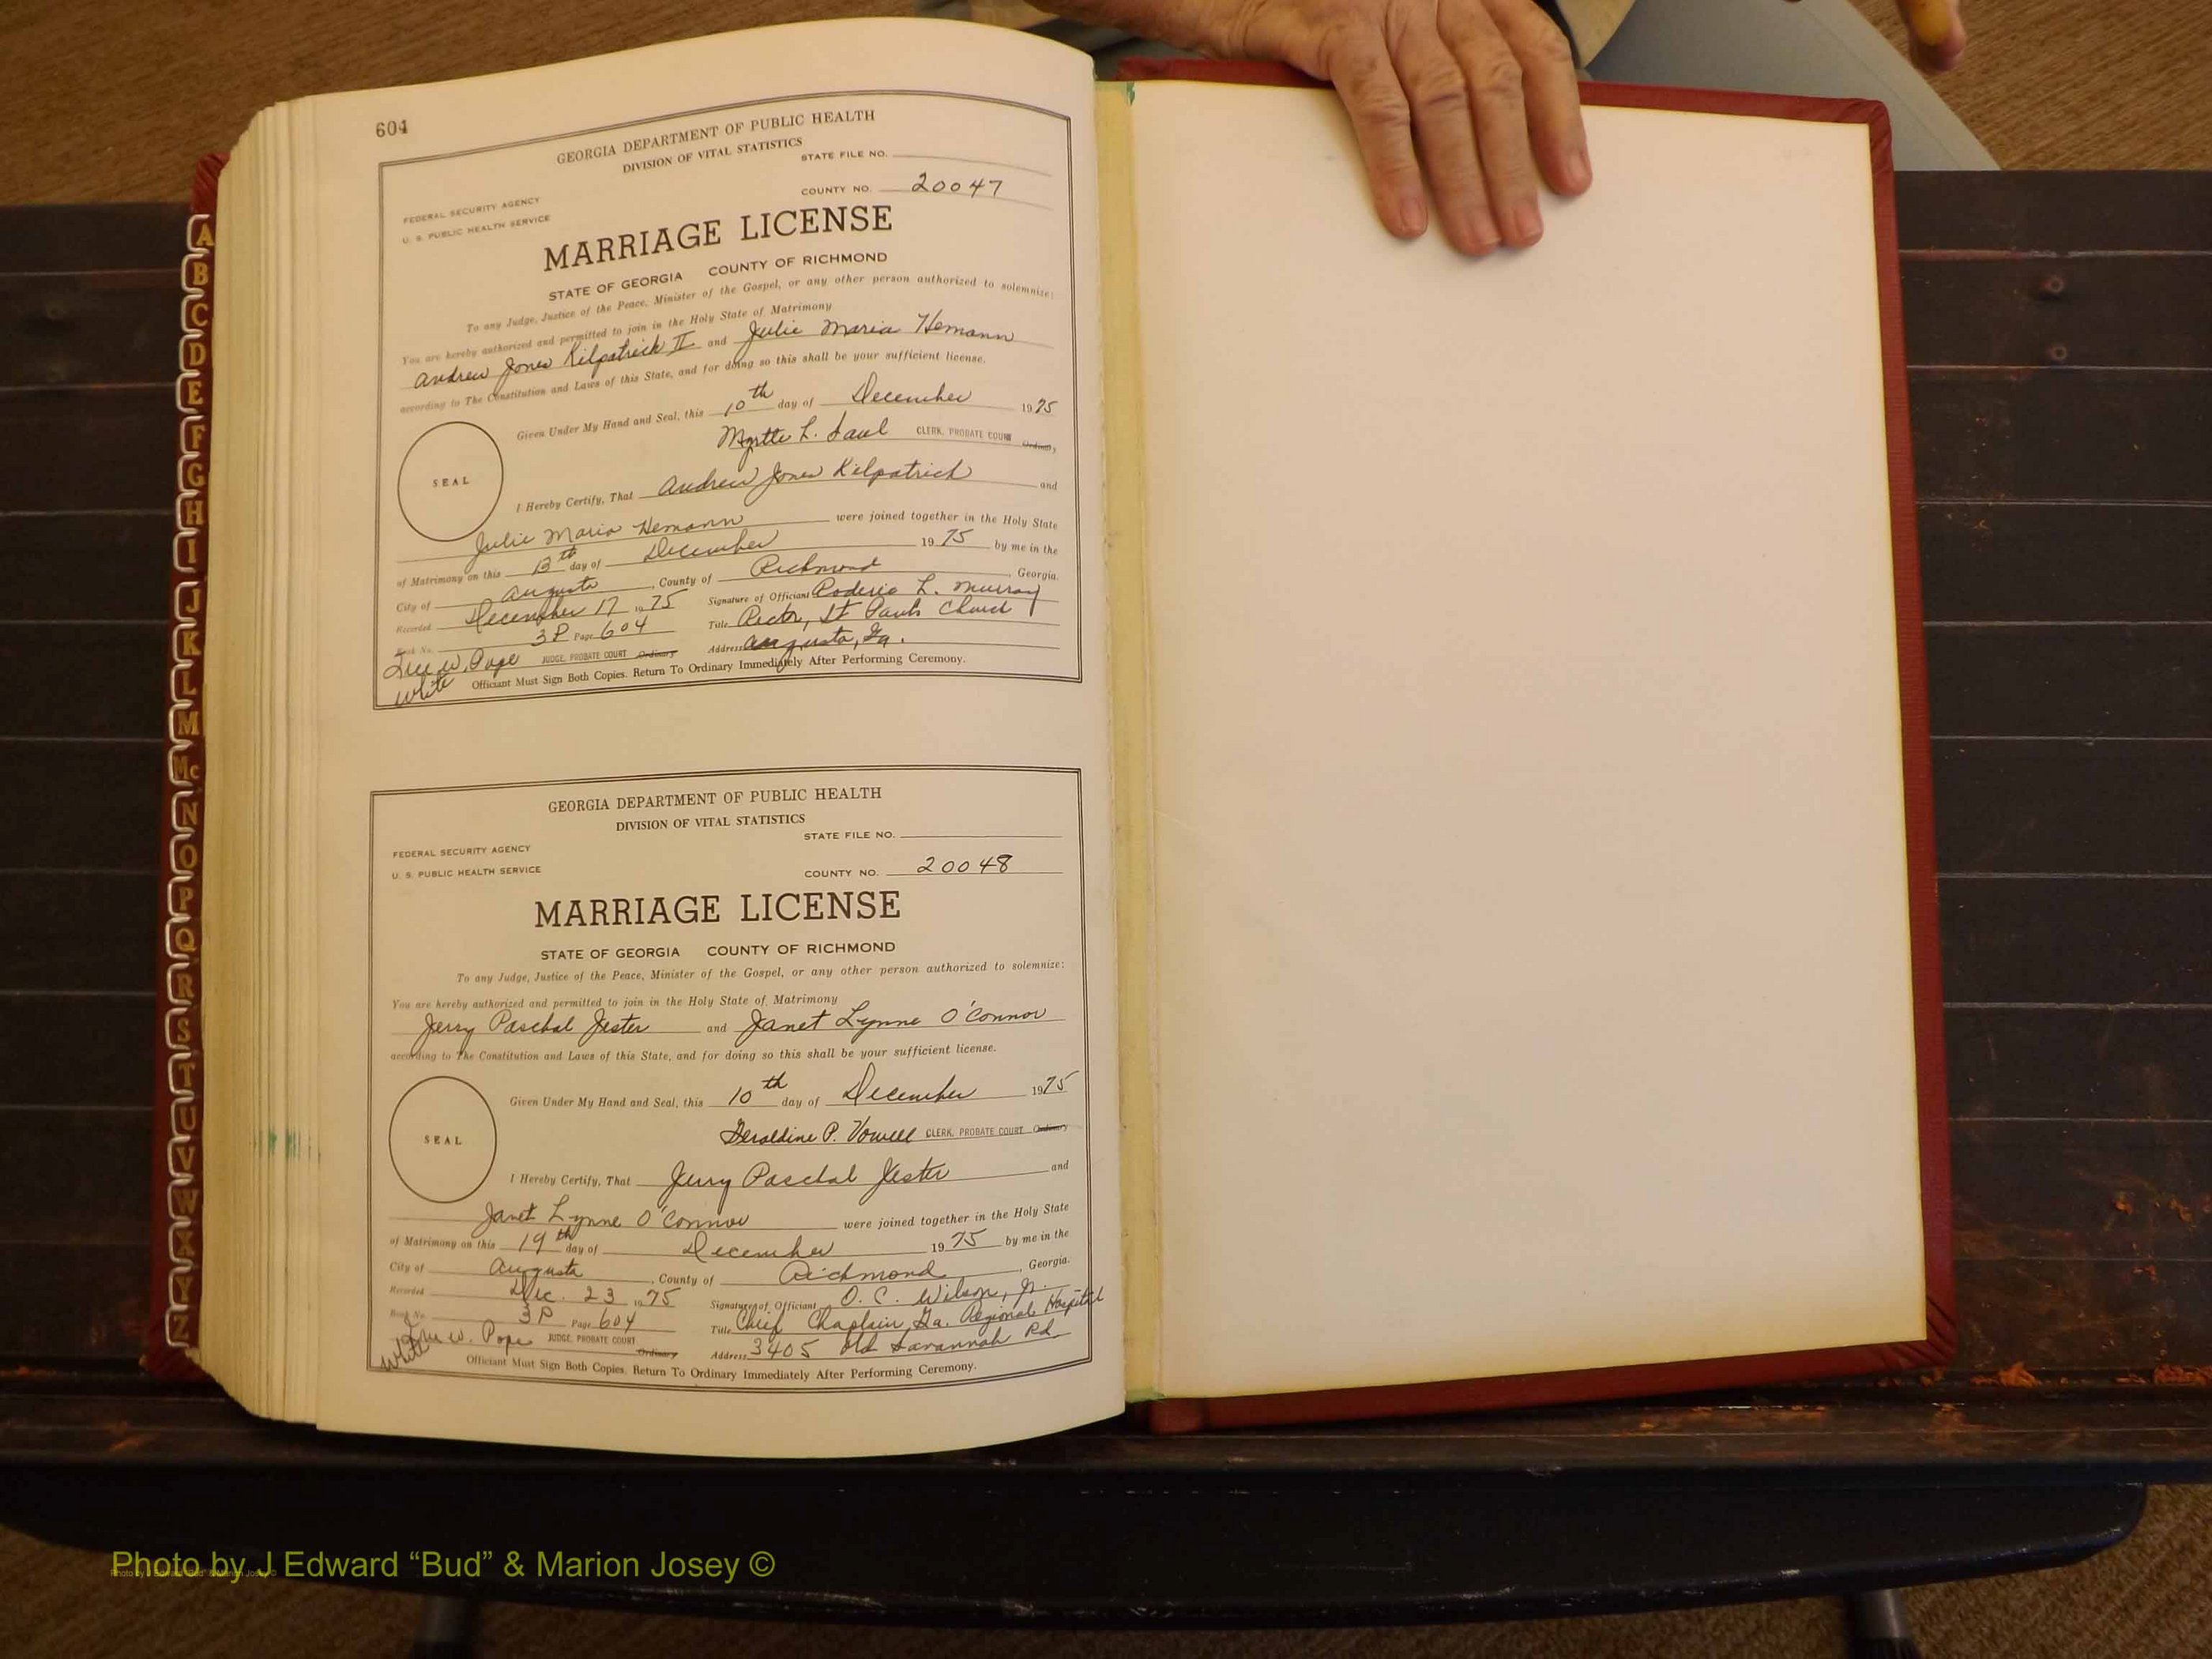 604
GEORGIA DEPARTMENT OF PUBLIC HEALTH
DIVISION OF VITAL STATISTICS
STATE FILE NO.
COUNTY NO. 20047
FEDERAL SECURITY AGENCY
U. S. PUBLIC HEALTH SERVICE
MARRIAGE LICENSE
STATE OF GEORGIA COUNTY OF RICHMOND
To any Judge, Justice of the Peace, Minister of the Gospel, or any other person authorized to solemnize:
You are hereby authorized and permitted to join in the Holy State of Matrimony
Andrew Jones Kilpatrick II and Julie Maria Hemann
according to The Constitution and Laws of this State, and for doing so this shall be your sufficient license.
Given Under My Hand and Seal, this 10th day of December 1975
Myrtle L. Saul CLERK, PROBATE COURT Ordinary
SEAL
I Hereby Certify, That Andrew Jones Kilpatrick and
Julie Maria Hemann were joined together in the Holy State
of Matrimony on this 13th day of December 1975 by me in the
City of Augusta, County of Richmond, Georgia.
Recorded December 17 1975 Signature of Officiant Roderic L. Murray
Book No. 3P Page 604 Title Rector, St Pauls Church
Address Augusta, Ga.
W. Pope JUDGE, PROBATE COURT Ordinary
Officiant Must Sign Both Copies. Return To Ordinary Immediately After Performing Ceremony.
White
GEORGIA DEPARTMENT OF PUBLIC HEALTH
DIVISION OF VITAL STATISTICS
STATE FILE NO.
FEDERAL SECURITY AGENCY
U. S. PUBLIC HEALTH SERVICE
COUNTY NO. 20048
MARRIAGE LICENSE
STATE OF GEORGIA COUNTY OF RICHMOND
To any Judge, Justice of the Peace, Minister of the Gospel, or any other person authorized to solemnize:
You are hereby authorized and permitted to join in the Holy State of Matrimony
Jerry Paschal Jester and Janet Lynne O'Connor
according to The Constitution and Laws of this State, and for doing so this shall be your sufficient license.
Given Under My Hand and Seal, this 10th day of December 1975
Geraldine P. Vowell CLERK, PROBATE COURT Ordinary
SEAL
I Hereby Certify, That Jerry Paschal Jester and
Janet Lynne O'Connor were joined together in the Holy State
of Matrimony on this 19th day of December 1975 by me in the
City of Augusta, County of Richmond, Georgia.
Recorded Dec. 23 1975 Signature of Officiant O. C. Wilson, Jr.
Book No. 3P Page 604 Title Chief Chaplain, Ga. Regional Hospital
W. Pope JUDGE, PROBATE COURT Ordinary Address 3405 Old Savannah Rd
White
Officiant Must Sign Both Copies. Return To Ordinary Immediately After Performing Ceremony.
A
B
C
D
E
F
G
H
I
J
K
L
M
Mc
N
O
P
Q
R
S
T
U
V
W
X
Y
Z
Photo by J Edward “Bud” & Marion Josey ©
Photo by J Edward “Bud” & Marion Josey ©